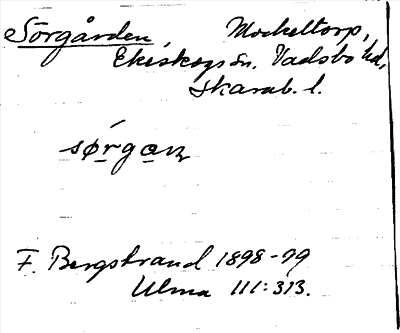 Sörgården, Mockeltorp,
Ekeskogs sn. Vadsbo hd,
Skarab. l.
sørgan
F. Bergstrand 1898-99
Ulma 111:313.